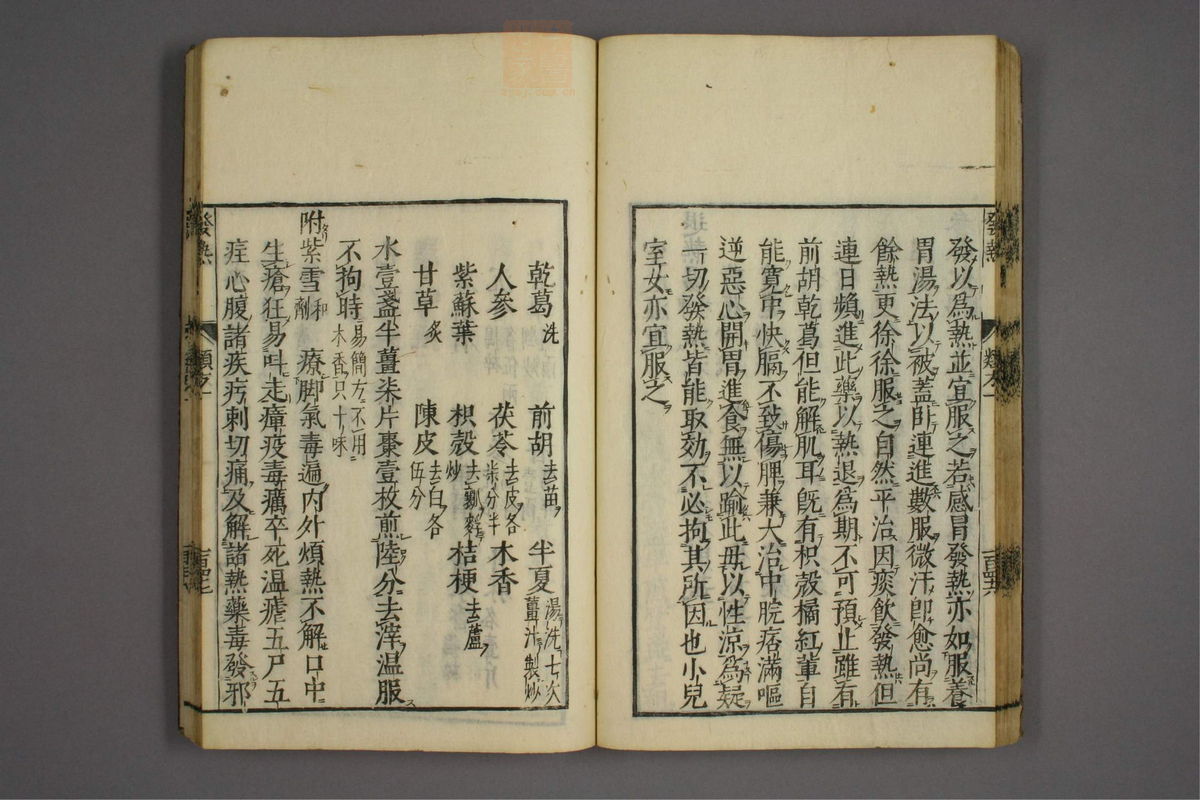 發以為熱並宜服之若感冒發熱亦如服養
胃湯法以被蓋卧連進數服微汗即愈尚有
餘熱更徐徐服之自然平治因痰飲發熱但
連日頻進此藥以熱退為期不可預止雖有
前胡乾葛但能解肌耳既有枳殼橘紅輩自
能寬中快膈不致傷脾兼大治中脘痞滿嘔
逆惡心開胃進食無以踰此毋以性涼為疑
一切發熱皆能取効不必拘其所因也小兒
室女亦宜服之
乾葛洗 前胡去苗 半夏湯洗七次薑汁製炒
人參 茯苓去皮各柒分半 木香
紫蘇葉 枳殼去瓤麩炒 桔梗去蘆
甘草炙 陳皮去白各伍分
水壹盞半薑柒片棗壹枚煎陸分去滓温服
不拘時易簡方不用木香只十味
附紫雪和劑 療脚氣毒遍内外煩熱不解口中
生瘡狂易叫走瘴疫毒癘卒死温瘧五尸五
疰心腹諸疾㽲刺切痛及解諸熱藥毒發邪
發熱